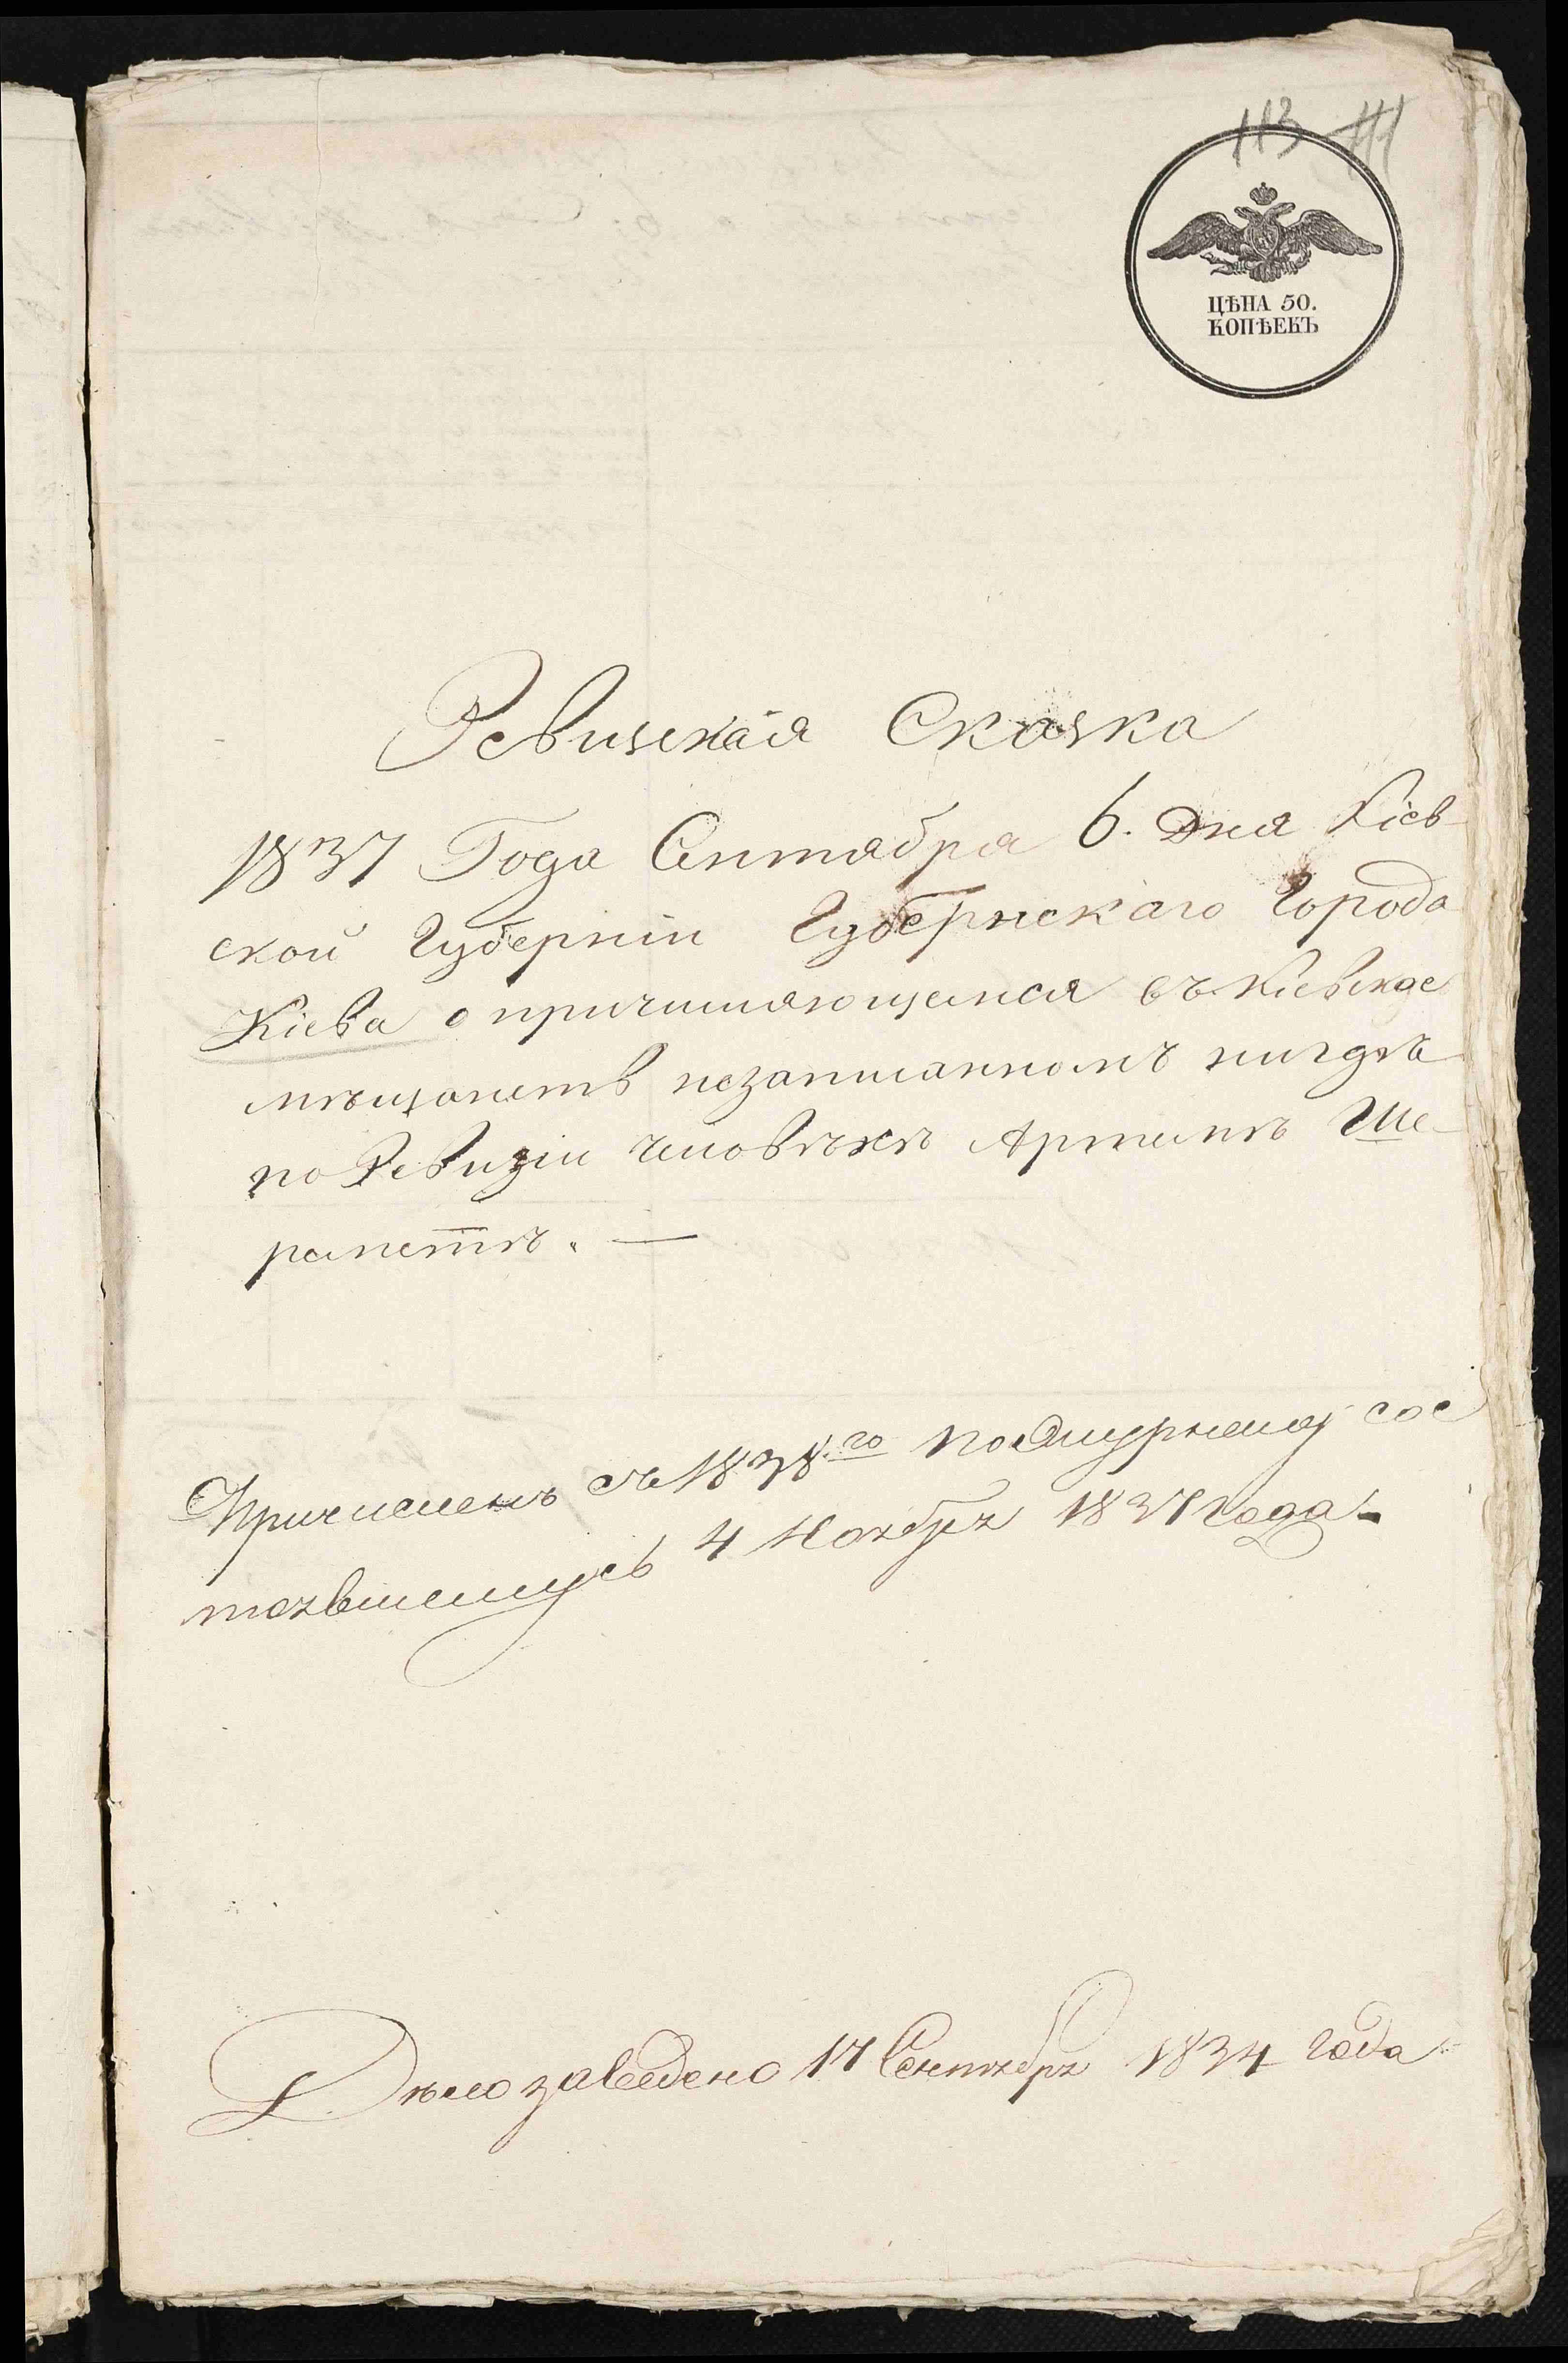 113 111
ЦѢНА 50.
КОПѢЕКЪ
Ревизская Сказка
1837 Года Сентября 6. дня Кіев
ской Губерніи Губернскаго Города
Кіева о причисляющемся въ Кіевское
мѣщанств незаписанномъ нигдѣ
по Ревизіи человѣкѣ
Причисленъ съ 1838го по журналу сос
тоявшемусь 4 Ноября 1837 года
Дѣло заведено 17 Сентября 1834 года